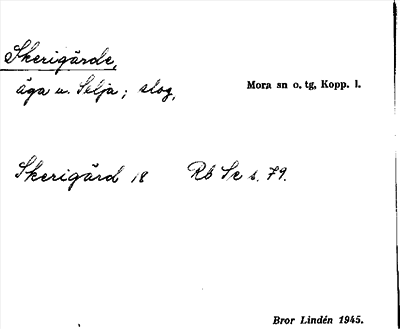 Skerigärde,
äga u. Selja; slog,
Mora sn o. tg, Kopp. l.
Skerigärd 18 Rb Se s. 79.
Bror Lindén 1945.